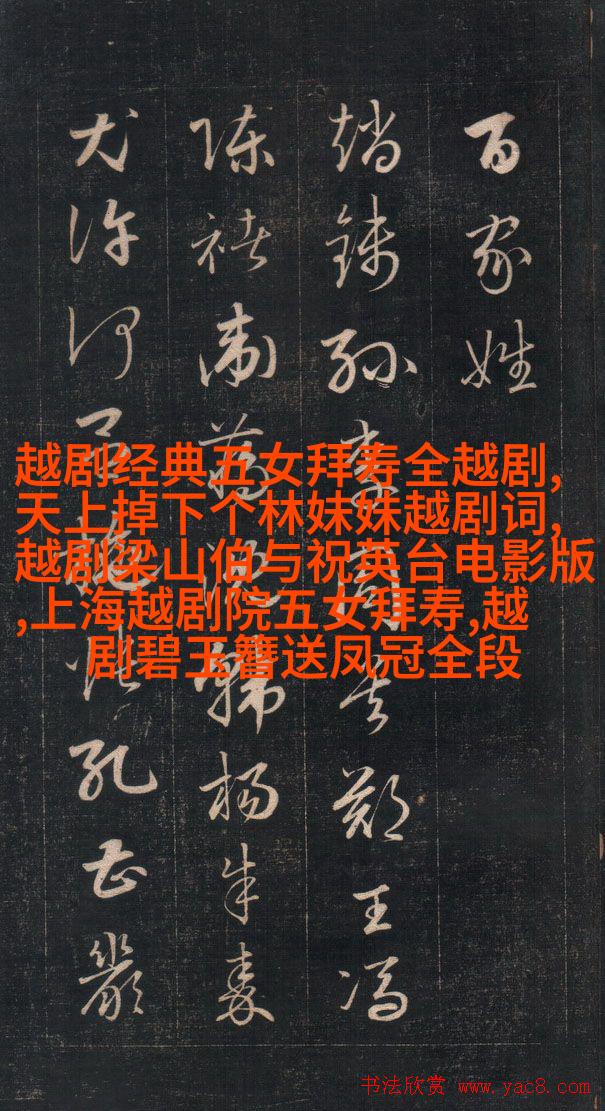 百家姓
趙錢孫李周吳鄭王馮
陳褚衛蔣沈韓楊朱秦
尤許何呂施張孔曹嚴
越剧经典五女拜寿全越剧,
天上掉下个林妹妹越剧词,
越剧梁山伯与祝英台电影版
,上海越剧院五女拜寿,越
剧碧玉簪送凤冠全段
书法欣赏 www.yac8.com